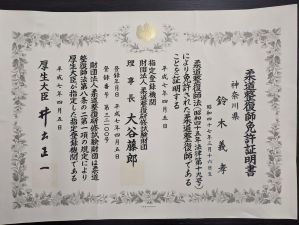 柔道整復師免許証明書
神奈川県
鈴木義孝
昭和四十七年三月十六日生
柔道整復師法(昭和四十五年法律第十九号)
により免許された柔道整復師である
ことを証明する
平成七年四月五日
指定登録機関
財団法人柔道整復研修試験財団
理事長 大谷藤郎
登録年月日 平成七年四月五日
登録番号 第三二一〇〇号
財団法人柔道整復研修試験財団は柔道
整復師法第八条の二第一項の規定により
厚生大臣が指定した指定登録機関である
平成七年四月五日
厚生大臣 井出正一